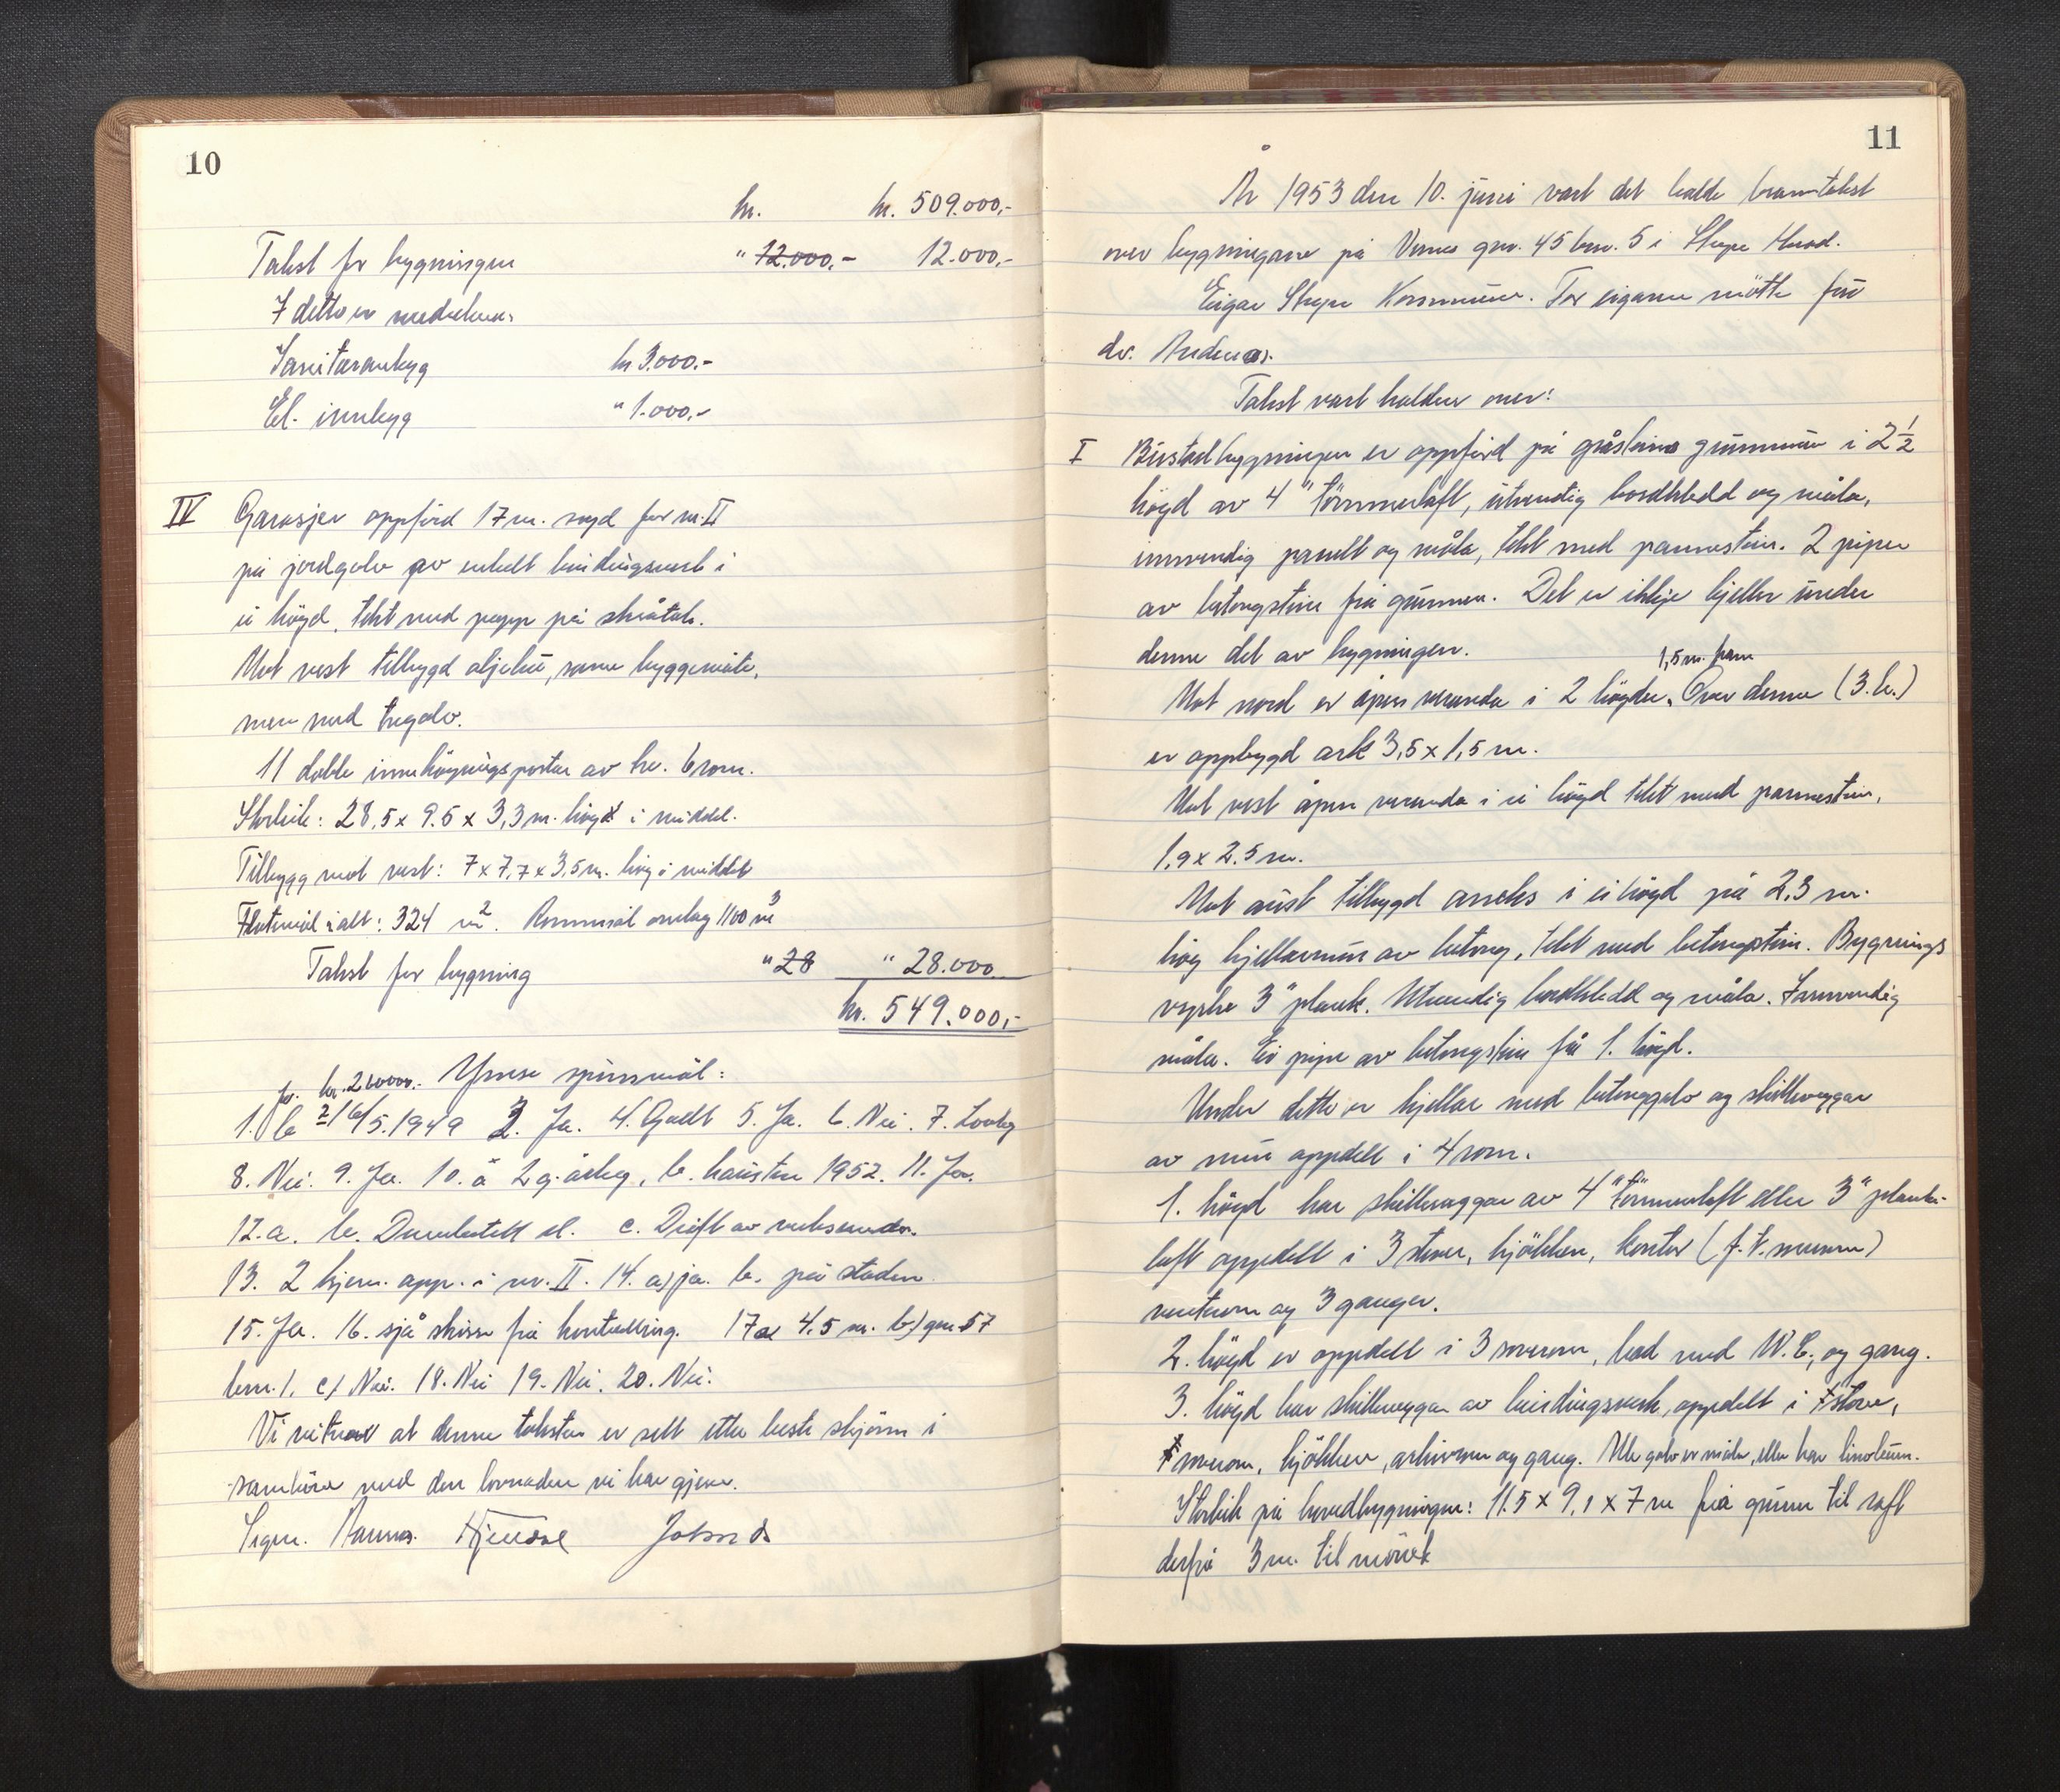 10
kr. kr. 509.000,-
Takst for bygningen " 12.000,- 12.000,-
I dette er medrekna:
Sanitæranlegg kr 3.000.-
El. innlegg " 1.000,-
IV Garasjen oppförd 17 m. syd for nr. II
på jordgolv av enkelt bindingsverk i
ei högd, tekt med papp på skråtak.
Mot vest tilbygd oljebu, same byggemåte,
men med tregolv.
11 doble innkjøyringsportar av kv. 6 rom.
Storleik: 28,5 x 9.5 x 3,3 m. høgd i middel.
Tilbygg mot vest: 7 x 7,7 x 3,5 m. høg i middel
Flatemål i alt: 324 m². Rommål omlag 1100 m³
Takst for bygning " 28 " 28.000
kr. 549.000,-
Ymse spörsmål:
kr. 210000.-
1. b 16/5.1949 3. Ja. 4. Godt 5. Ja. 6. Nei. 7. Lovleg
8. Nei. 9. Ja. 10. a 2 g. årleg, b. hausten 1952. 11. Ja.
12. a. b. el. c. Drift av
13. 2 kjem. app. i nr. II. 14. a) ja. b. på staden
15. Ja. 16. sjå skisse frå 17 a 4.5 m. b) gnr 57
bnr. 1. c) Nei. 18. Nei 19. Nei. 20. Nei.
Vi vitnar at denne taksten er sett etter beste skjönn i
samhöve med den lovnaden vi har gjeve.
Sign.
11
År 1953 den 10. juni vart det halde branntakst
over bygningane på gnr. 45 bnr. 5 i Stryn Herad.
Eigar Stryn Kommune. For eigaren mötte frü
dr. Andenæs.
Takst vart halden over:
I Bustadbygningen er oppförd på gråsteins grunnmur i 2½
högd av 4" tömmerlaft, utvendig bordkledd og måla,
innvendig panelt og måla, tekt med pannestein. 2 piper
av betongstein frå grunnen. Det er ikkje kjeller under
denne del av bygningen.
Mot nord er åpen veranda i 2 högder, 1,5 m. fram Over denne (3. h.)
er oppbygd ark 3,5 x 1,5 m.
Mot vest åpen veranda i ei högd tekt med pannestein,
1,9 x 2.5 m.
Mot aust tilbygd anneks i ei högd på 2,3 m.
høg kjellarmur av betong, tekt med betongstein. Bygnings
3" plank. Utvendig bordkledd og måla. Innvendig
måla. Ei pipe av betongstein frå 1. högd.
Under dette er kjellar med betonggolv og skilleveggar
av mur oppdelt i 4 rom.
1. högd har skilleveggar av 4" tömmerlaft eller 3" planke-
laft oppdelt i 3 stover, kjökken, kontor (f. t. )
venterom og 3 ganger.
2. högd er oppdelt i 3 soverom, bad med W.C., og gang.
3. högd har skilleveggar av bindingsverk, oppdelt i 1 stove,
1 soverom, kjökken, arkivrom og gang. Alle golv er måla, eller har linoleum.
Storleik på hovedbygningen: 11.5 x 9,1 x 7 m frå grunn til raft
derfrå 3 m. til möne